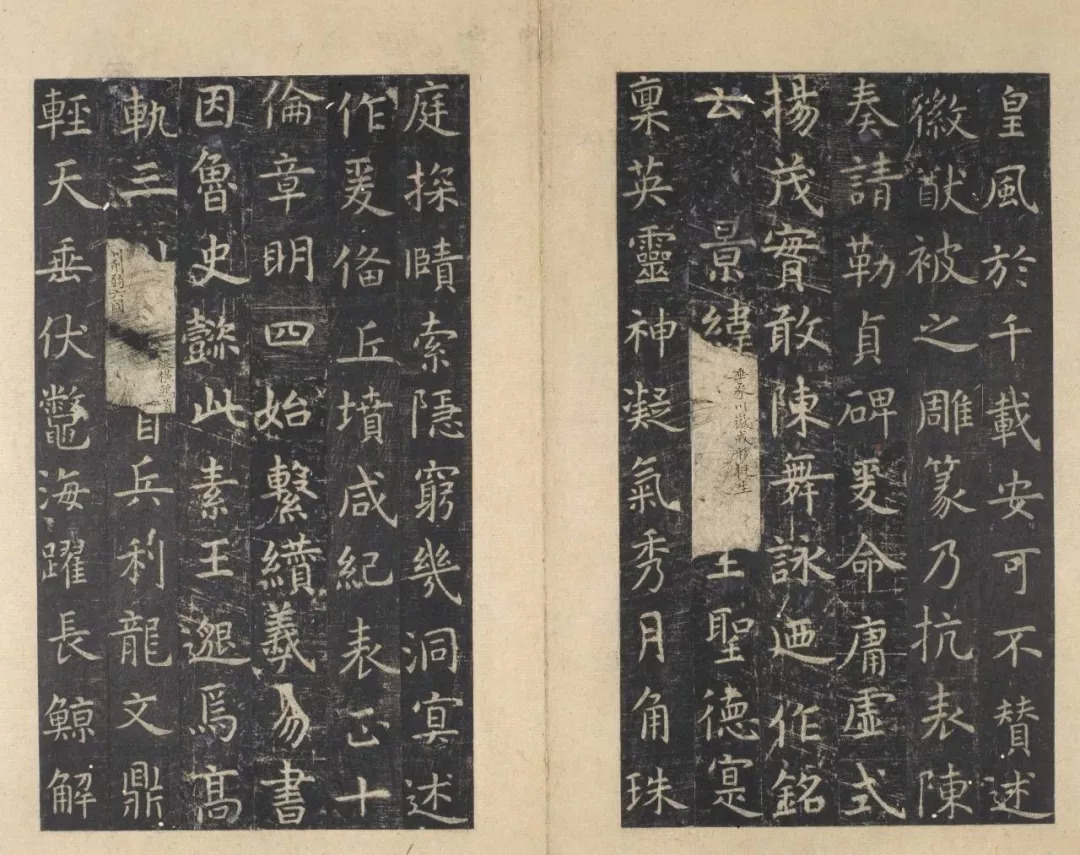 皇風於千載安可不贊述
徽猷被之雕篆乃抗表陳
奏請勒貞碑爰命庸虛式
揚茂實敢陳舞詠迺作銘
云景緯垂象川嶽成形挺生聖德寔
稟英靈神凝氣秀月角珠
庭探賾索隱窮幾洞冥述
作爰備丘墳咸紀表正十
倫章明四始繫纘羲易書
因魯史懿此素王邈焉高
軌三川削弱六國縱橫鶉首兵利龍文鼎
輕天垂伏鼈海躍長鯨解